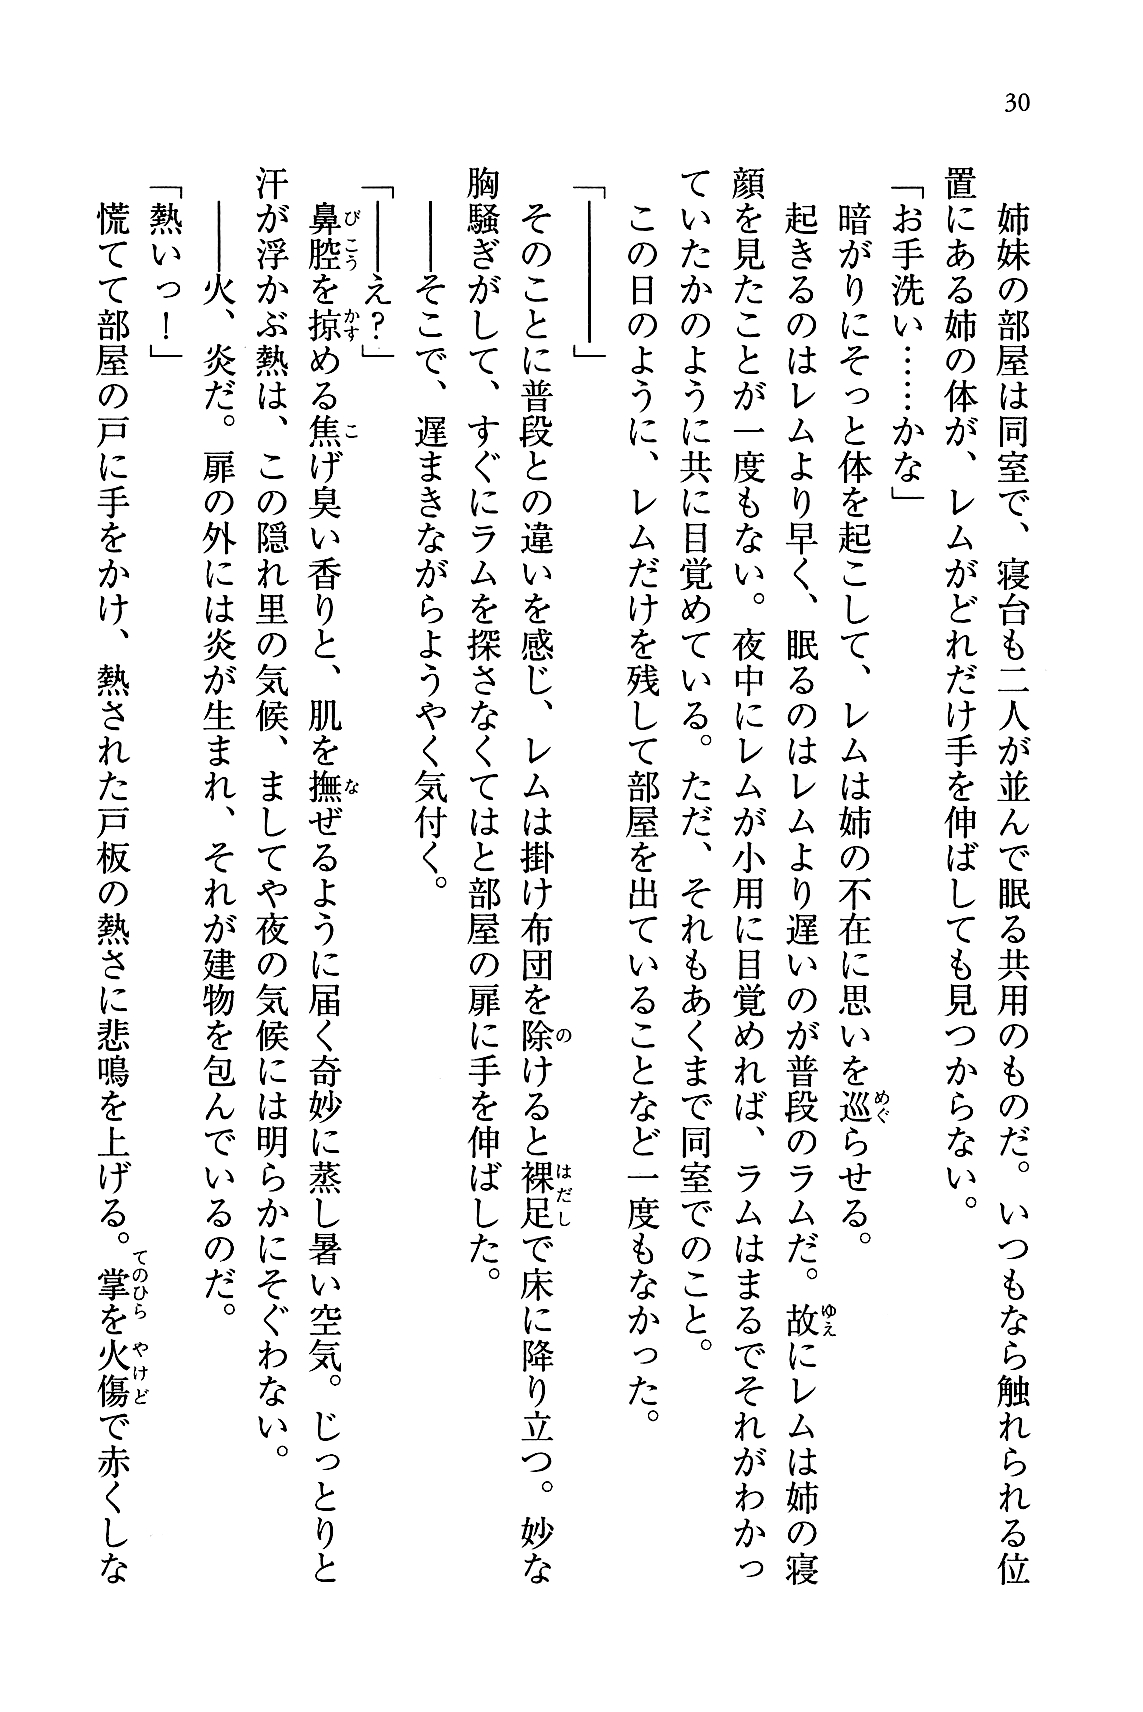 30
姉妹の部屋は同室で、寝台も二人が並んで眠る共用のものだ。いつもなら触れられる位
置にある姉の体が、レムがどれだけ手を伸ばしても見つからない。
「お手洗い……かな」
暗がりにそっと体を起こして、レムは姉の不在に思いを巡らせる。
起きるのはレムより早く、眠るのはレムより遅いのが普段のラムだ。故にレムは姉の寝
顔を見たことが一度もない。夜中にレムが小用に目覚めれば、ラムはまるでそれがわかっ
ていたかのように共に目覚めている。ただ、それもあくまで同室でのこと。
この日のように、レムだけを残して部屋を出ていることなど一度もなかった。
「――――」
そのことに普段との違いを感じ、レムは掛け布団を除けると裸足で床に降り立つ。妙な
胸騒ぎがして、すぐにラムを探さなくてはと部屋の扉に手を伸ばした。
――そこで、遅まきながらようやく気付く。
「――え?」
鼻腔を掠める焦げ臭い香りと、肌を撫ぜるように届く奇妙に蒸し暑い空気。じっとりと
汗が浮かぶ熱は、この隠れ里の気候、ましてや夜の気候には明らかにそぐわない。
――火、炎だ。扉の外には炎が生まれ、それが建物を包んでいるのだ。
「熱いっ!」
慌てて部屋の戸に手をかけ、熱された戸板の熱さに悲鳴を上げる。掌を火傷で赤くしな